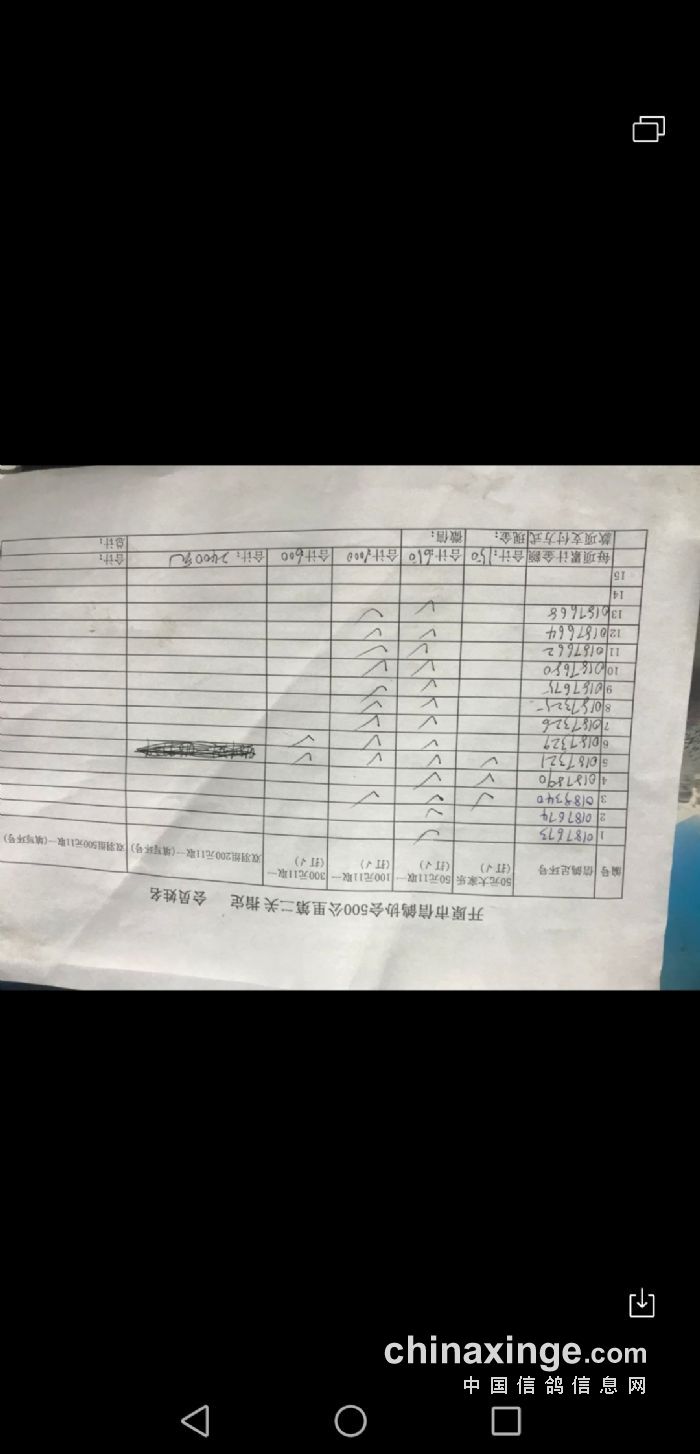 开原市信鸽协会500公里第二关指定 会员姓名
编号 信鸽足环号 50元大家乐(打√) 50元11取一(打√) 100元11取一(打√) 300元11取一(打√) 双羽组200元11取一(填写环号) 双羽组500元11取一(填写环号)
1 0187673 ✓
2 0187674 ✓
3 0189340 ✓ ✓ ✓
4 0187890 ✓ ✓
5 0187321 ✓ ✓ ✓ ✓
6 0187329 ✓ ✓ ✓
7 0187326 ✓ ✓
8 0187325 ✓ ✓
9 0187675 ✓ ✓
10 0187680 ✓ ✓
11 0187662 ✓ ✓
12 0187664 ✓ ✓
13 0187668 ✓ ✓
14
15
每项累计金额 合计:150 合计:650 合计:1000 合计:600 合计:2400元 合计:
款项支付方式 现金: 微信: 总计:
chinaxinge.com
中国信鸽信息网